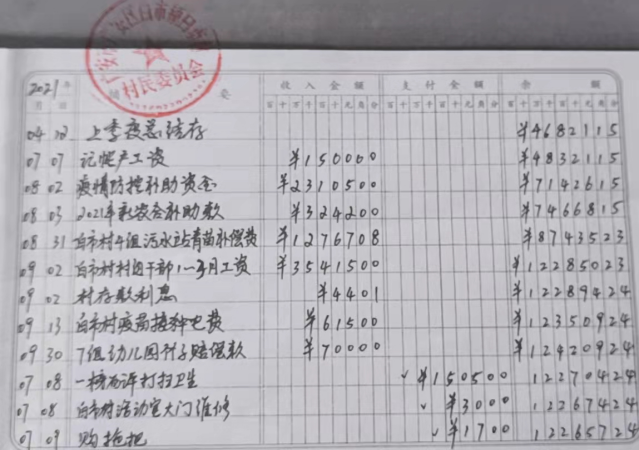 村民委员会
2021年 收入金额 支付金额 余额
月 日 摘要 百十万千百十元角分 百十万千百十元角分 百十万千百十元角分
04 12 上季度总结存 ¥4682115
07 07 记帐户工资 ¥150000 ¥4832115
08 02 疫情防控补助资金 ¥2310500 ¥7142615
08 03 2021年 补助款 ¥324200 ¥7466815
08 31 白市村4组污水站青苗补偿费 ¥1276708 ¥8743523
09 02 白市村村组干部1-3月工资 ¥3541500 ¥12285023
09 02 村存款利息 ¥4401 ¥12289424
09 13 白市村疫苗接种电费 ¥61500 ¥12350924
09 30 7组幼儿园竹子赔偿款 ¥70000 ¥12420924
07 08 打扫卫生 ✓ ¥150500 12270424
07 08 白市村活动室大门维修 ✓ ¥3000 12267424
07 09 购拖把 ✓ ¥1700 12265724